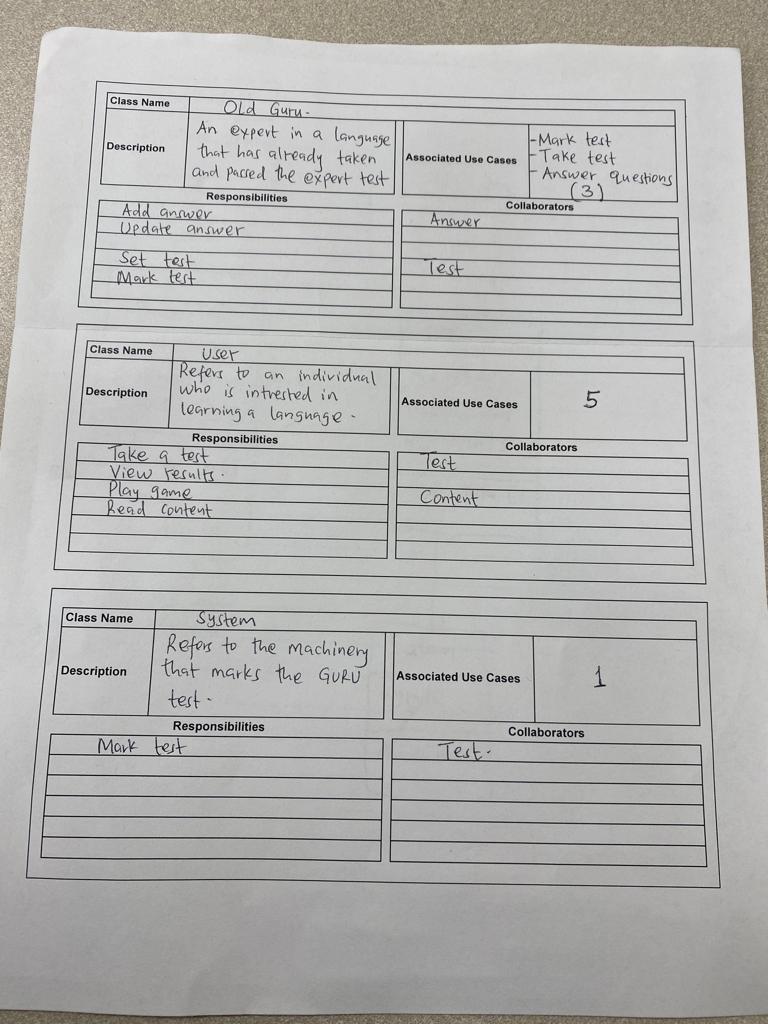 Class Name OLd Guru.
Description An expert in a language
that has already taken
and passed the expert test
Associated Use Cases - Mark test
- Take test
- Answer questions
(3)
Responsibilities
Add answer
Update answer
Set test
Mark test
Collaborators
Answer
Test
Class Name User
Description Refers to an individual
who is intrested in
learning a language.
Associated Use Cases 5
Responsibilities
Take a test
View results.
Play game
Read content
Collaborators
Test
Content
Class Name System
Description Refers to the machinery
that marks the GURU
test.
Associated Use Cases 1
Responsibilities
Mark test
Collaborators
Test.